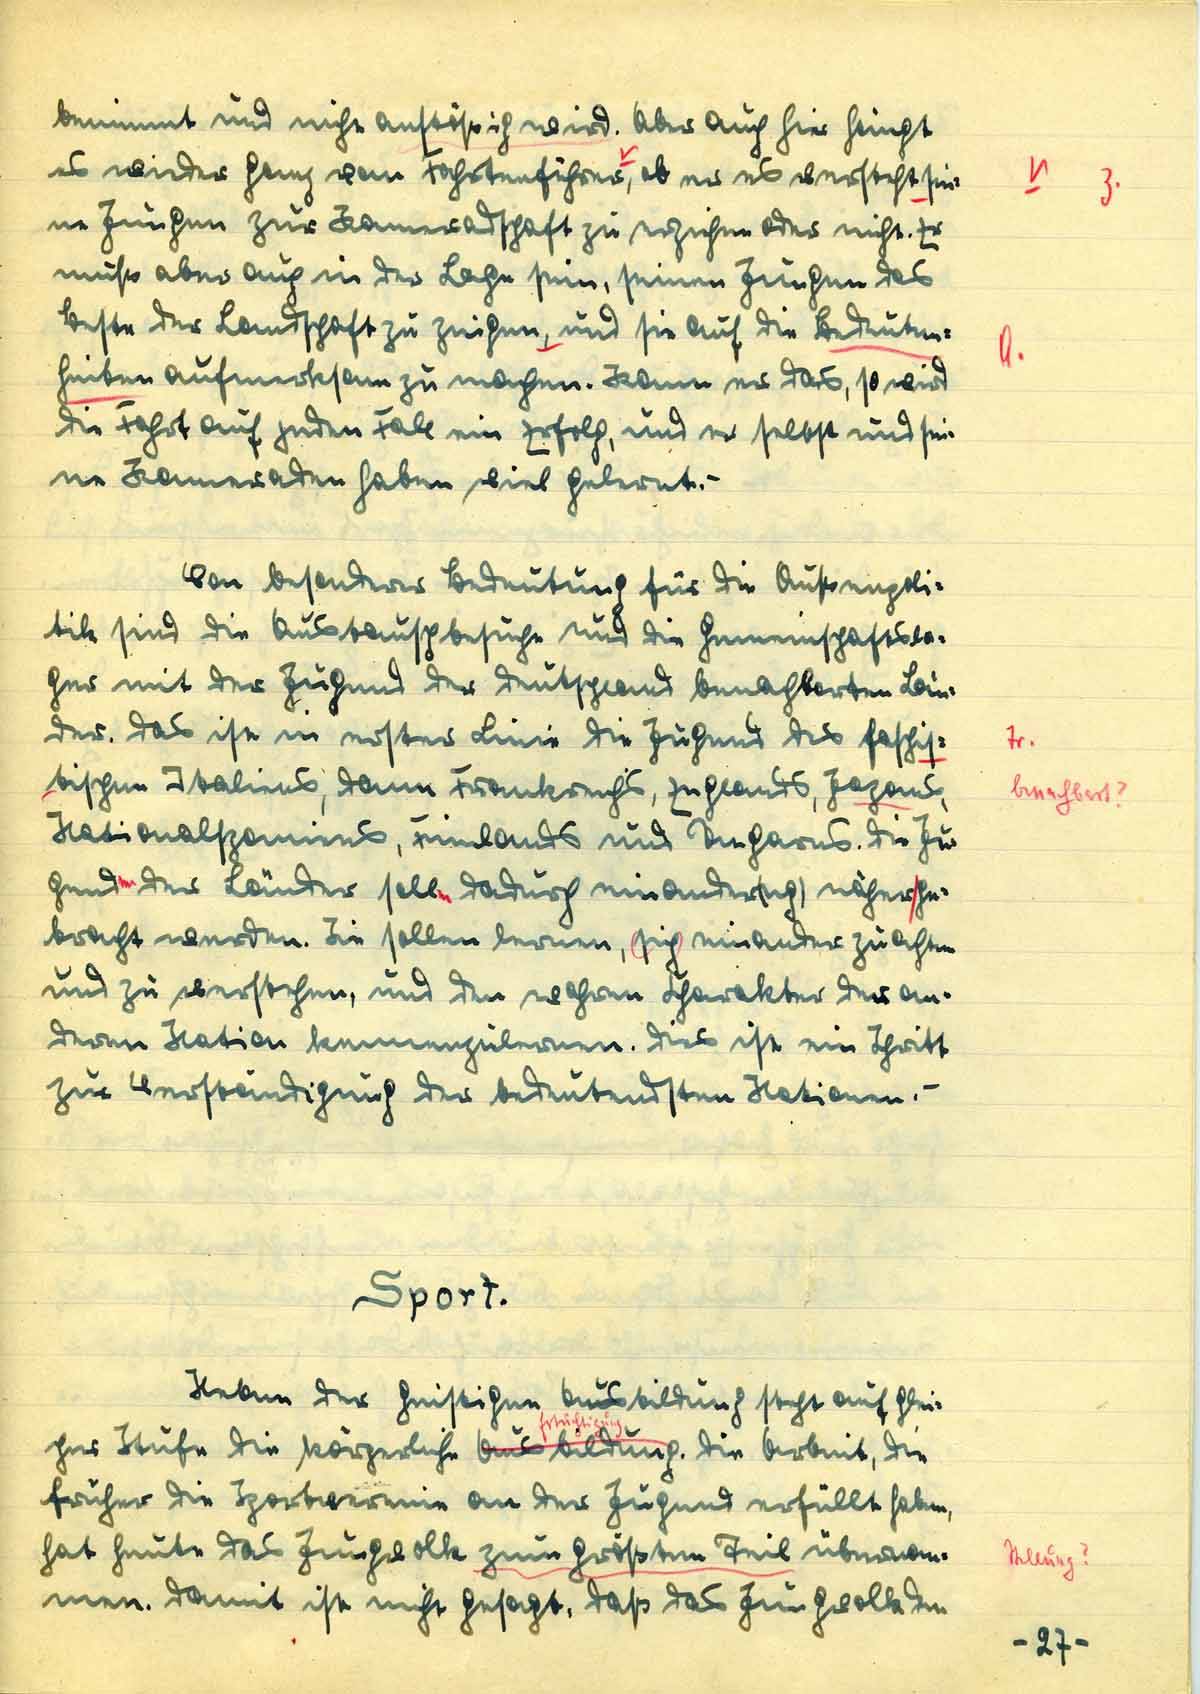 benimmt und nicht anstößich wird. Aber auch hier hängt
es wieder ganz vom Fahrtenführer, ob er es versteht sei- V Z.
ne Jungen zur Kameradschaft zu erziehen oder nicht. Er
muß aber auch in der Lage sein, seinen Jungen das
beste der Landschaft zu zeigen, und sie auf die Bedeuten-
heiten aufmerksam zu machen. Kann er das, so wird A.
die Fahrt auf jeden Fall ein Erfolg, und er selbst und sei-
ne Kameraden haben viel gelernt.-
Von besonderer Bedeutung für die Außenpoli-
tik sind die Austauschbesuche und die Gemeinschaftsla-
ger mit der Jugend der Deutschland benachbarten Län-
der. Das ist in erster Linie die Jugend des faschis- Tr.
tischen Italiens, dann Frankreichs, Englands, Japans, benachbart?
Nationalspaniens, Finlands und Ungarns. Die Ju
genden der Länder sollen dadurch einander(ng) näher/ge-
bracht werden. Sie sollen lernen, (sich) einander zu achten
und zu verstehen, und den wahren Charakter der an-
deren Nation kennenzulernen. Dies ist ein Schritt
zur Verständigung der bedeutendsten Nationen.-
Sport.
Neben der geistigen Ausbildung steht auf glei-
Ertüchtigung
cher Stufe die körperliche Ausbildung. Die Arbeit, die
früher die Sportvereine an der Jugend erfüllt haben,
hat heute das Jungvolk zum größten Teil übernom- Stellung?
men. Damit ist nicht gesagt, daß das Jungvolk den
-27-